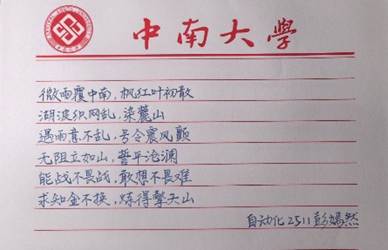 中南大学
微雨覆中南，枫红叶初散
湖波织网乱，染麓山
遇雨意不乱，号令震风巅
无阻立如山，誓平沧澜
能战不畏战，敢想不畏难
求知金不换，炼得擎天山
自动化2511彭嫣然